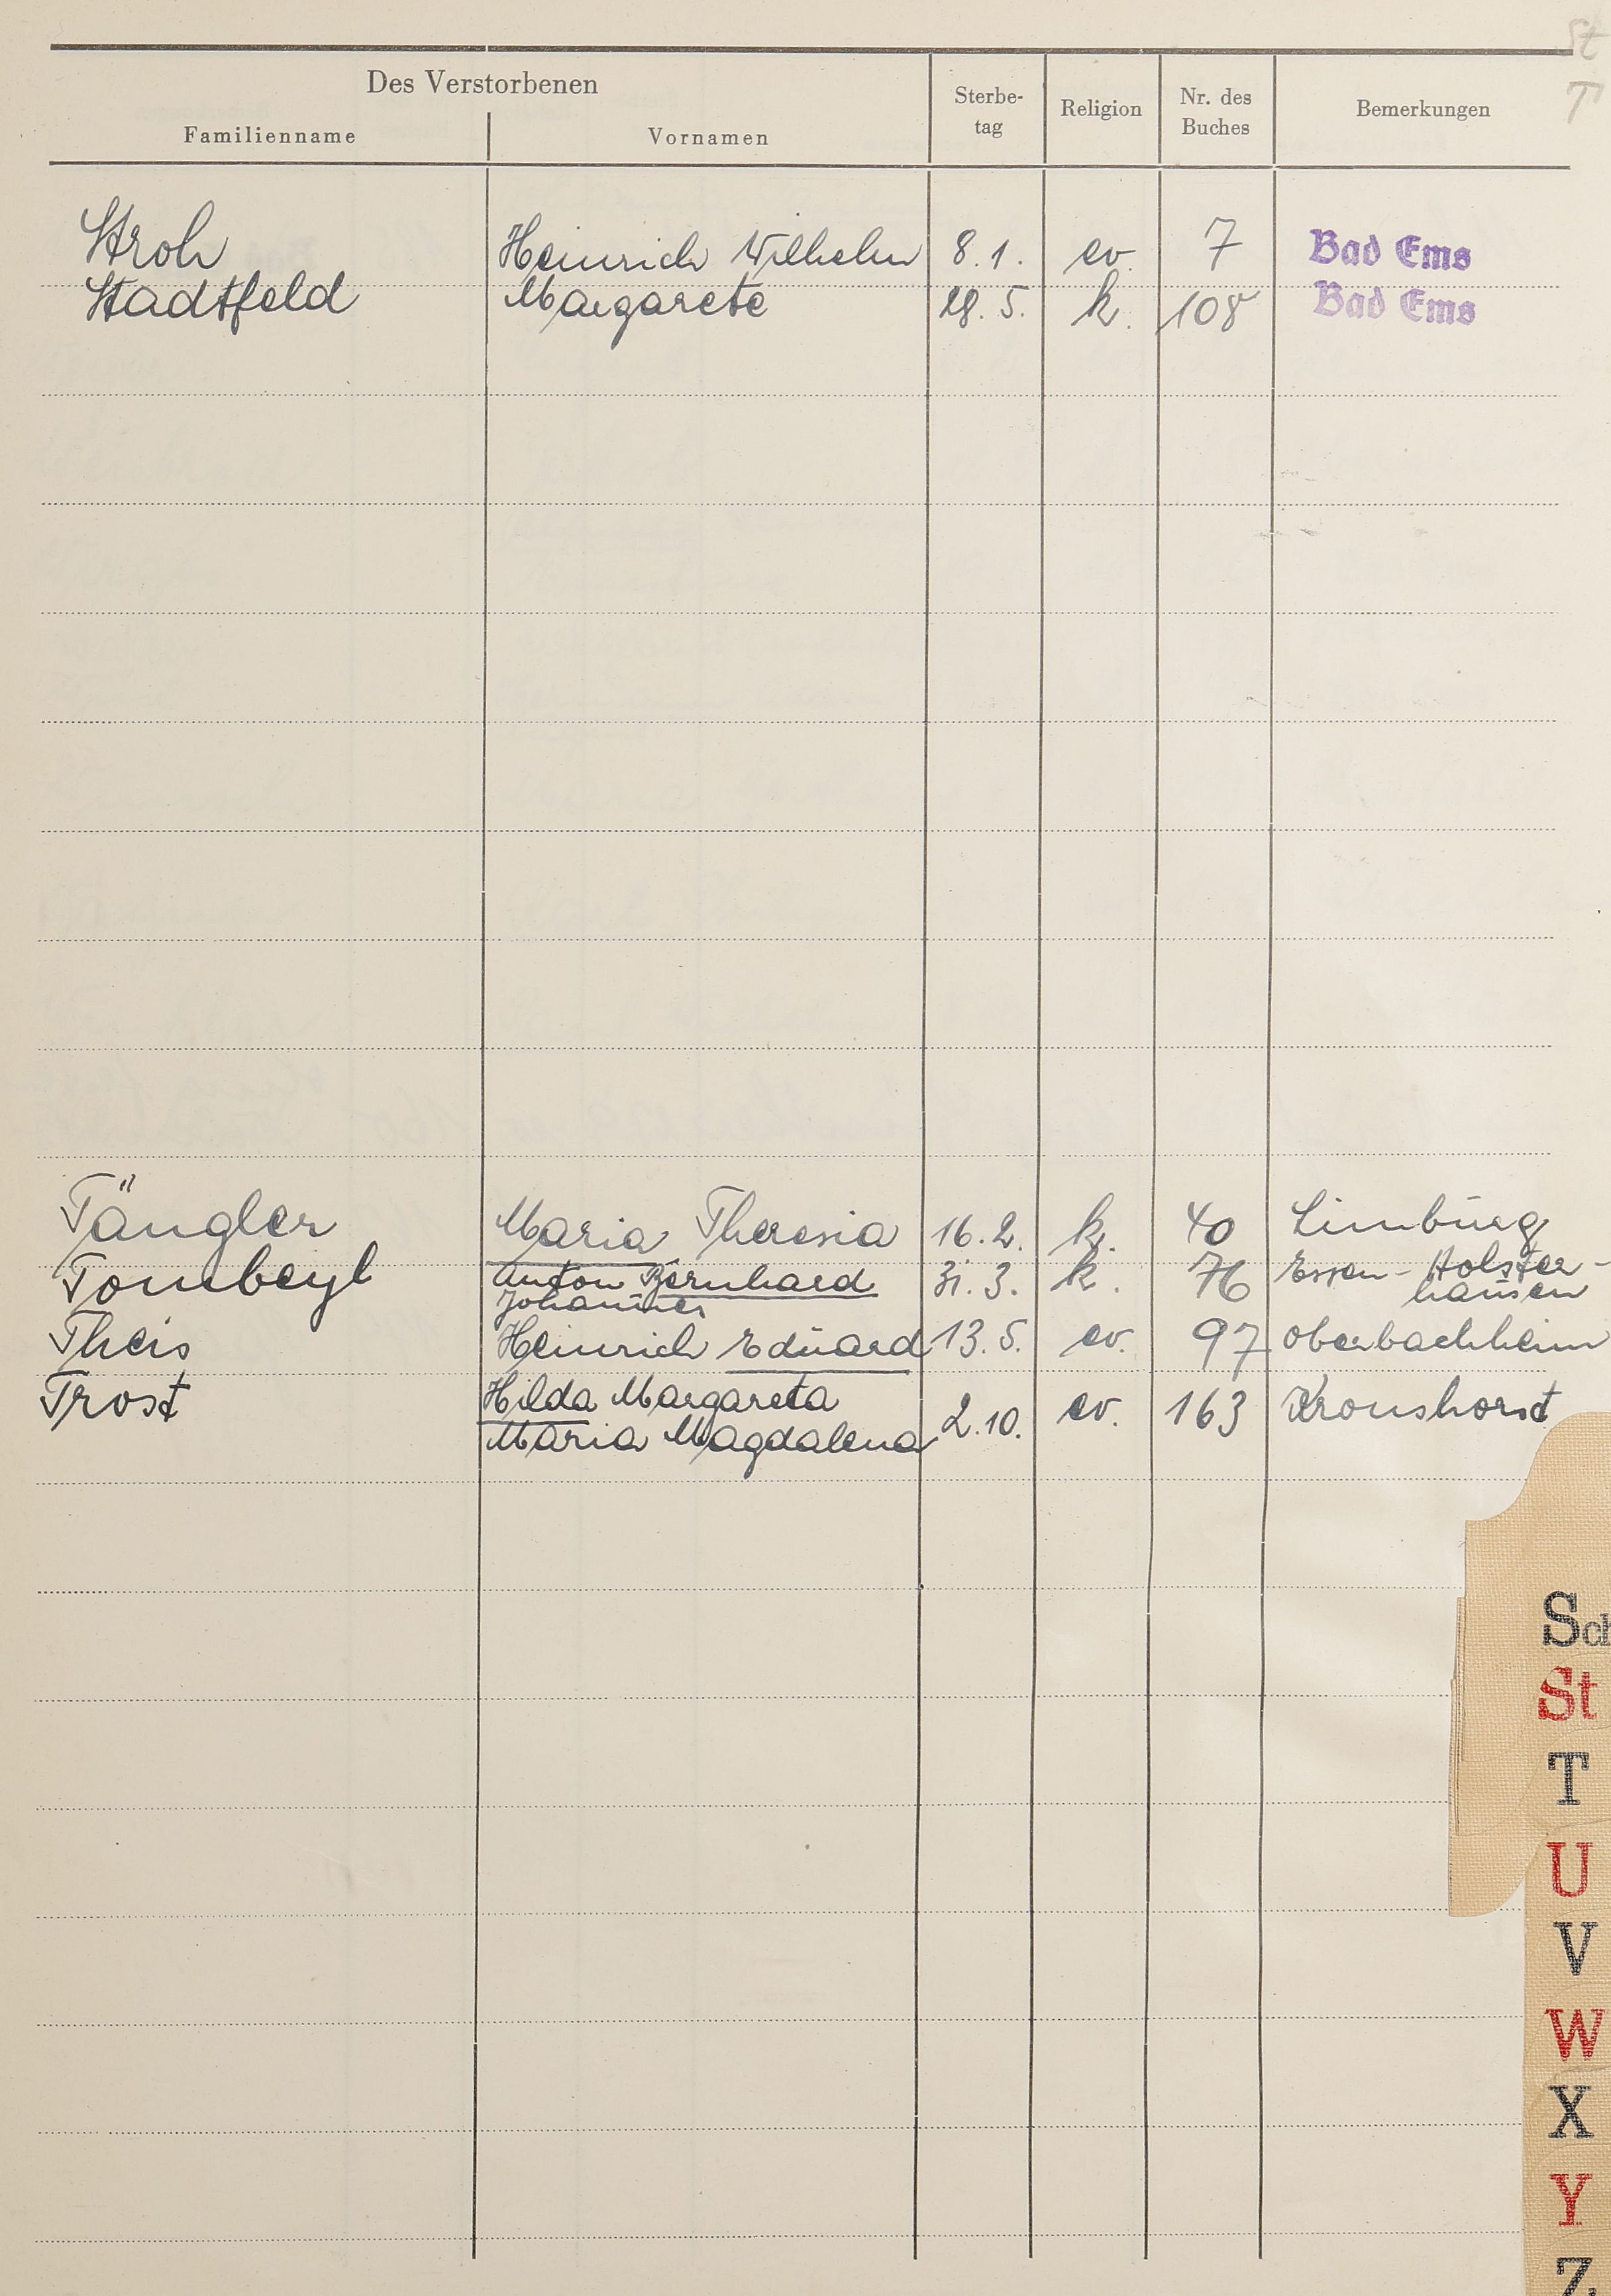 St
T
Des Verstorbenen
Familienname Vornamen Sterbe-tag Religion Nr. des Buches Bemerkungen
Stroh Heinrich Wilhelm 8.1. ev. 7 Bad Ems
Stadtfeld Margarete 28. 5. k. 108 Bad Ems
Tängler Maria Theresia 16.2. k. 40 Limburg
Tombeyl Anton Bernhard 31. 3. k. 76 Essen-Holster-
Johannes hausen
Theis Heinrich Eduard 13.5. ev. 97 Oberbachheim
Trost Hilda Margareta 2.10. ev. 163 Kronshorst
Maria Magdalena
Sch
St
T
U
V
W
X
Y
Z